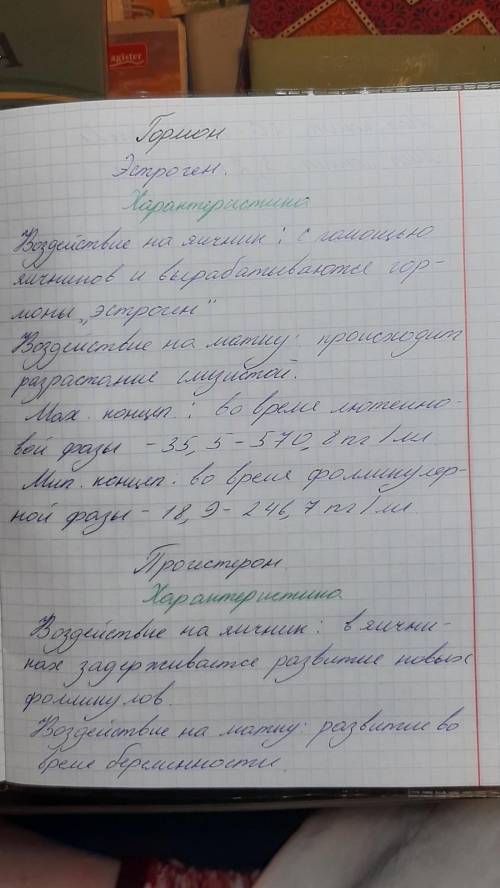 agister
Гормон
Эстроген.
Характеристика
Воздействие на яичник: с помощью
яичников и вырабатываются гор-
моны „эстроген"
Воздействие на матку: происходит
разрастание слизистой.
Мах. концы.: во время лютеино-
вой фазы - 35,5 - 570,8 пг/мл
Мин. концы: во время фолликуляр-
ной фазы - 18,9 - 246,7 пг/мл
Прогистерон
Характеристика
Воздействие на яичник: в яични-
ках задерживается развитие новых
фолликулов.
Воздействие на матку: развитие во
время беременности.